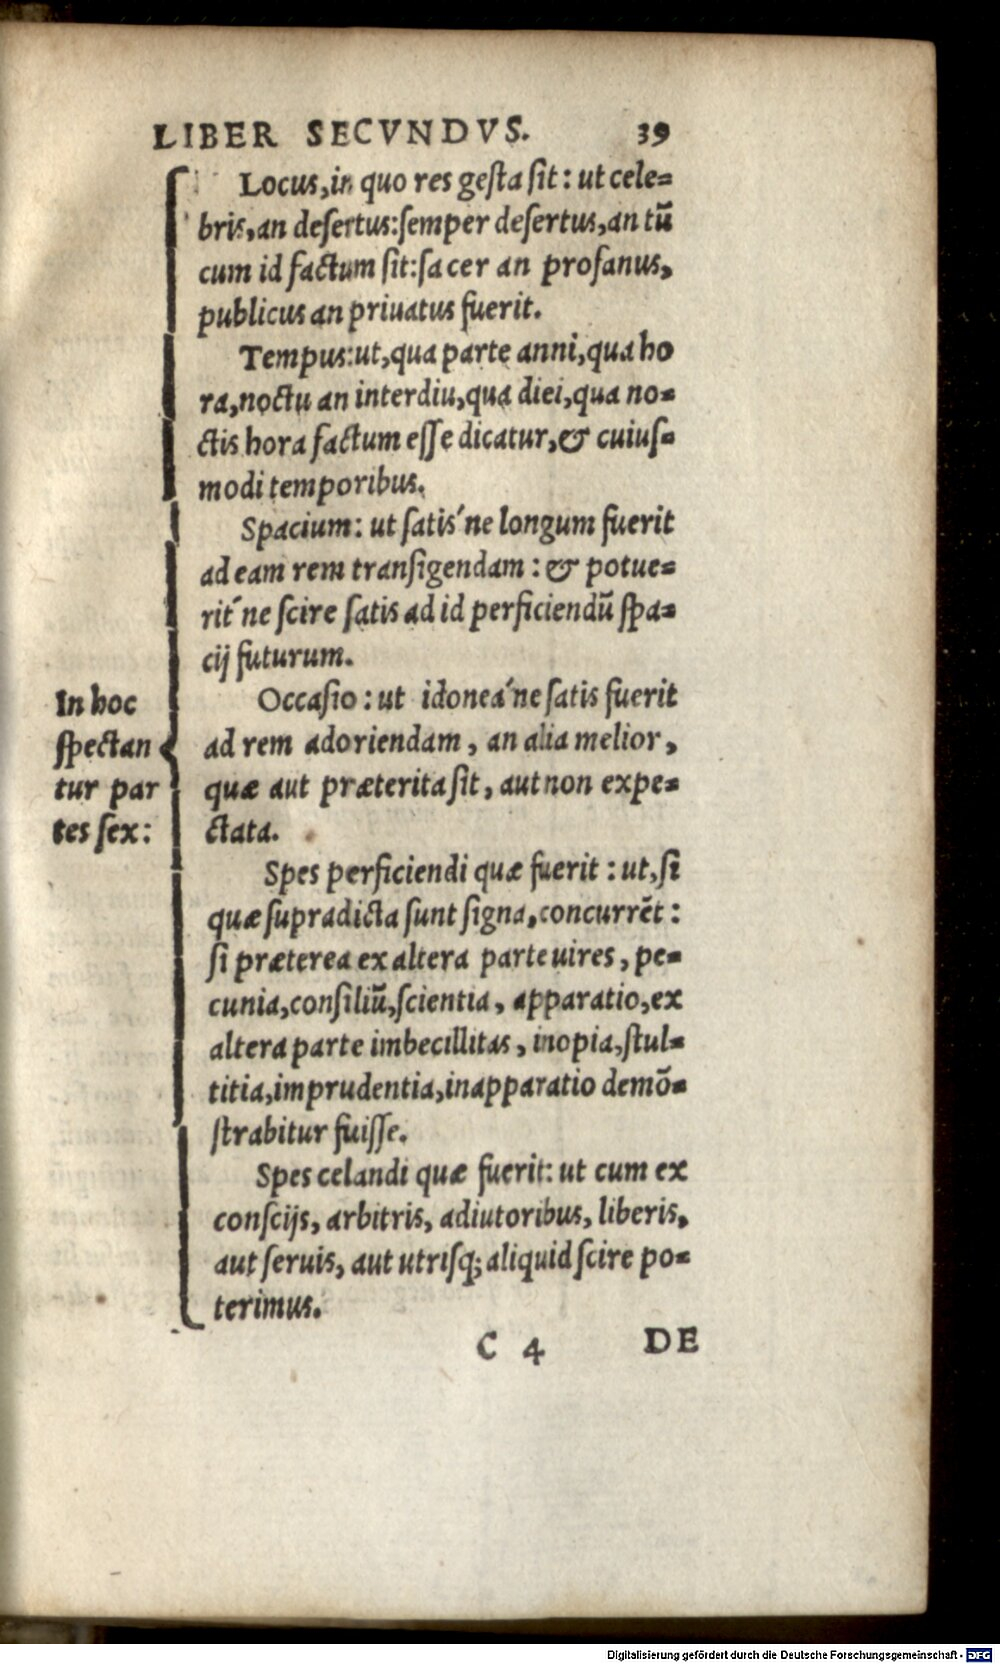 LIBER SECVNDVS. 39
Locus, in quo res gesta sit: ut cele=
bris, an desertus: semper desertus, an tũ
cum id factum sit: sacer an profanus,
publicus an priuatus fuerit.
Tempus: ut, qua parte anni, qua ho
ra, noctu an interdiu, qua diei, qua no=
ctis hora factum esse dicatur, & cuius=
modi temporibus.
Spacium: ut satis´ne longum fuerit
ad eam rem transigendam: & potue=
rit´ne scire satis ad id perficiendũ spa=
cij futurum.
In hoc
spectan
tur par
tes sex:
Occasio: ut idonea´ne satis fuerit
ad rem adoriendam, an alia melior,
quæ aut præterita sit, aut non expe=
ctata.
Spes perficiendi quæ fuerit: ut, si
quæ supradicta sunt signa, concurrẽt:
si præterea ex altera parte uires, pe=
cunia, consiliũ, scientia, apparatio, ex
altera parte imbecillitas, inopia, stul=
titia, imprudentia, inapparatio demõ=
strabitur fuisse.
Spes celandi quæ fuerit: ut cum ex
conscijs, arbitris, adiutoribus, liberis,
aut seruis, aut utrisq; aliquid scire po=
terimus.
C 4 DE
Digitalisierung gefördert durch die Deutsche Forschungsgemeinschaft - DFG